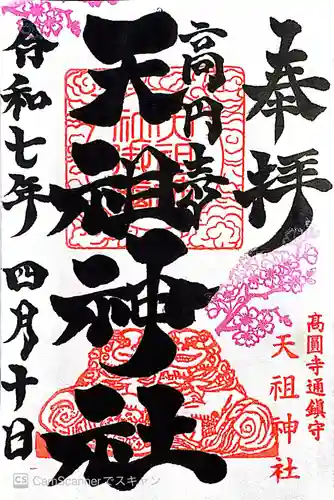 奉拝
高円寺
天祖神社
令和七年 四月十日
高圓寺通鎮守
天祖神社
CS CamScannerでスキャン